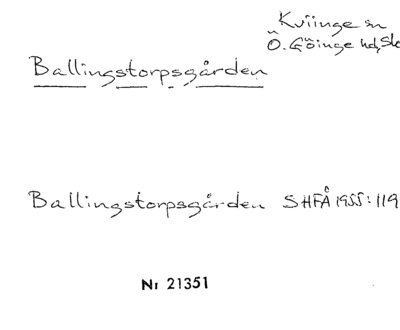 Kviinge sn
Ö. Göinge hd, Sk
Ballingstorpsgården
Ballingstorpsgården SHFÅ 1955:119
Nr 21351